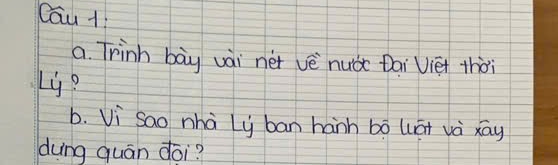 Câu 1:
a. Trình bày vài nét về nước Đại Việt thời
Lý?
b. Vì sao nhà Lý ban hành bộ luật và xây
dựng quân đội?